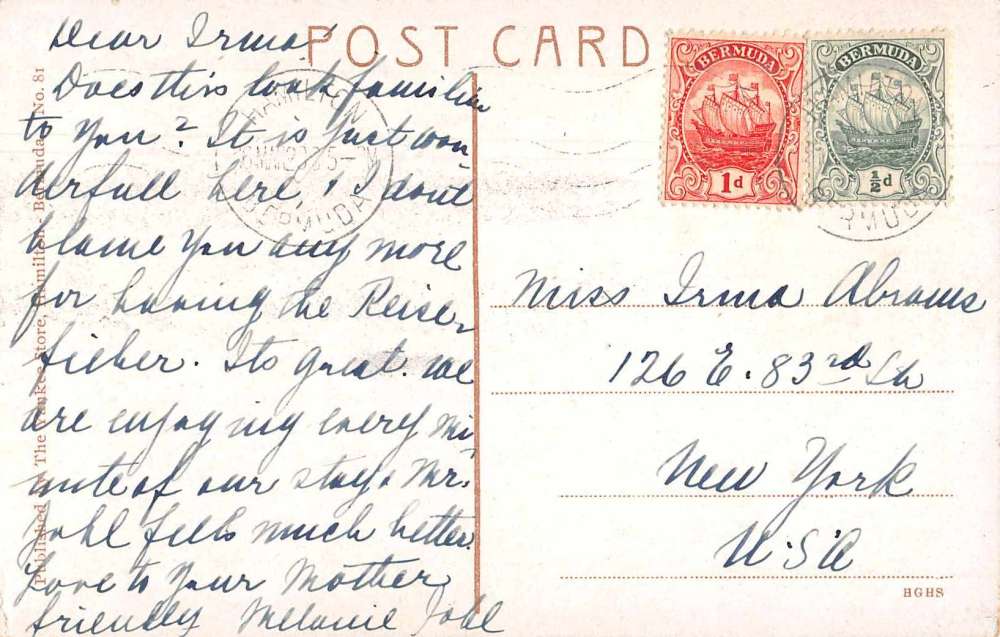 POST CARD
Dear Irma
Does this look familiar
to you? It is just won-
derfull here & I dont
blame you any more
for having the Reise-
fieber. Its great. we
are enjoying every mi-
nute of our stay. Mr.
Johl fells much better.
Love to your Mother
friendly Melanie Johl
Published by The Yankee Store, Hamilton, Bermuda. No. 81
HAMILTON
BERMUDA
BERMUDA
1d
BERMUDA
½d
Miss Irma Abrams
126 E. 83rd St
New York
U.S.A
HGHS